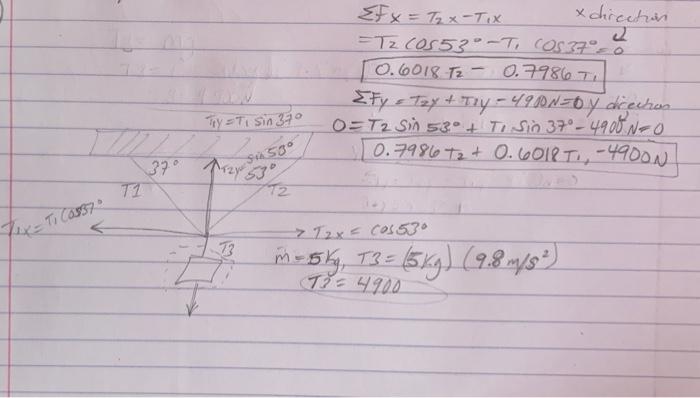 ΣFx = T2x - T1x x direction
= T2 cos 53° - T1 cos 37° = 0
0.6018 T2 - 0.7986 T1
ΣFy = T2y + T1y - 4900N = 0 y direction
0 = T2 Sin 53° + T1 Sin 37° - 4900 N = 0
0.7986 T2 + 0.6018 T1, -4900N
T1y = T1 Sin 37°
37°
T2y = Sin 50°
53°
T1
T2
T1x = T1 Cos 37°
T2x = cos 53°
T3
m = 5 Kg, T3 = (5 Kg) (9.8 m/s²)
T3 = 4900